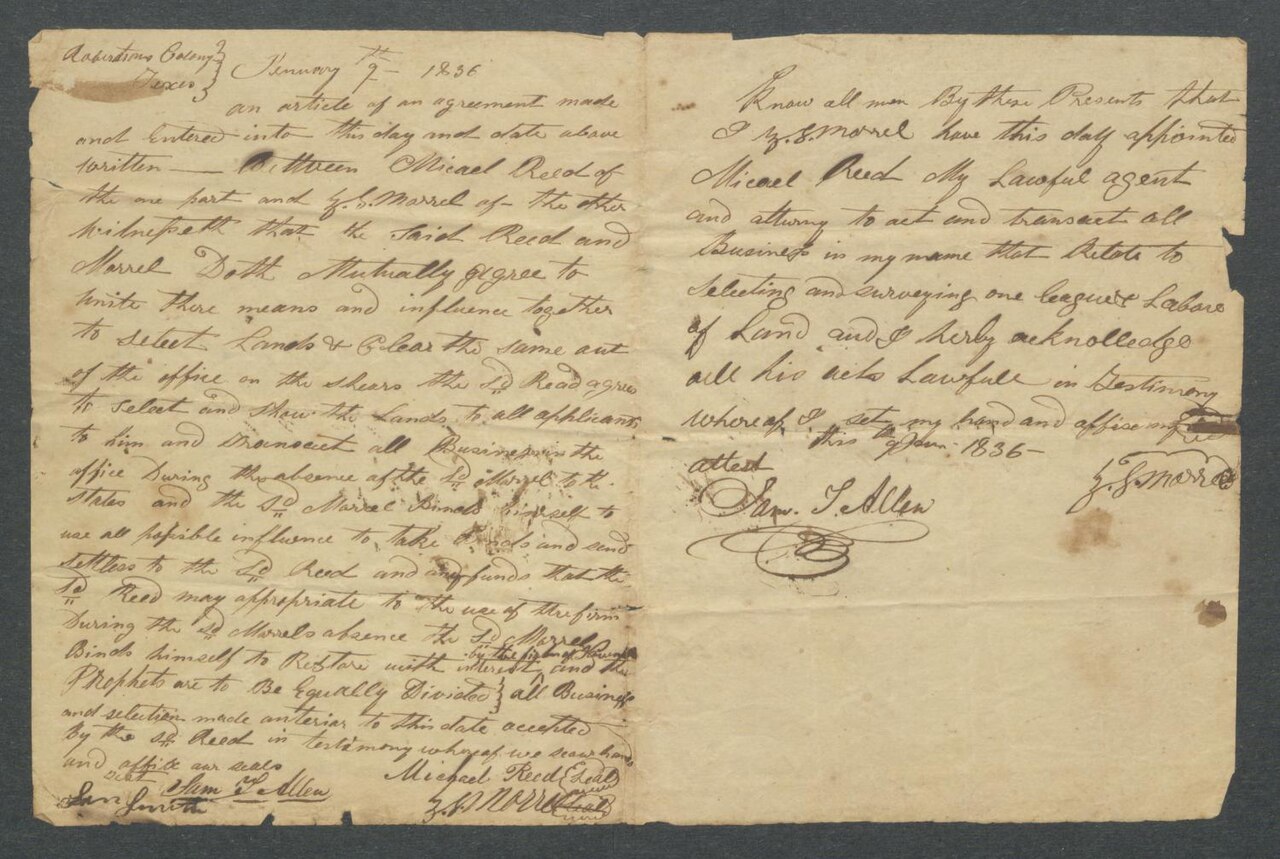 Robertsons Colony }
Texas } Jenuary 9th 1836
an article of an agreement made
and Entered into this day and date above
written — Bittween Micael Reed of
the one part and Z. S. Morrel of the other
witnesseth that the Said Reed and
Morrel Doth Mutually Agree to
unite there means and influence together
to select Lands & Clear the same out
of the office on the shears the Sd Read agrees
to select and show the Lands to all applicants
to him and transact all Business in the
office During the absence of the Sd Morrel to the
states and the Sd Morrel Binds himself to
use all possible influence to take and send
settlers to the Sd Reed and any funds that the
Sd Reed may appropriate to the use of the firm
During the Sd Morrels absence the Sd Morrel
Binds himself to Restore with interest by the first of and the
Prophets are to Be Equally Divided } all Business
and selection made anterior to this date accepted
By the sd Reed in testimony whereof we se our hands
and affix our seals
Test Sam T Allen Michael Reed (Seal)
Smith Z. S. Morrel (Seal)
Know all men By these Presents that
I Z. S Morrel have this day appointed
Micael Reed My Lawful agent
and atturny to act and transact all
Business in my name that Relate to
selecting and surveying one league & Labore
of Land and I herby acknolledge
all his acts Lawfull in Testimony
whereof I set my hand and affix my
this 9th Jan. 1836 —
attest Z. S. Morrel
Sam. T. Allen